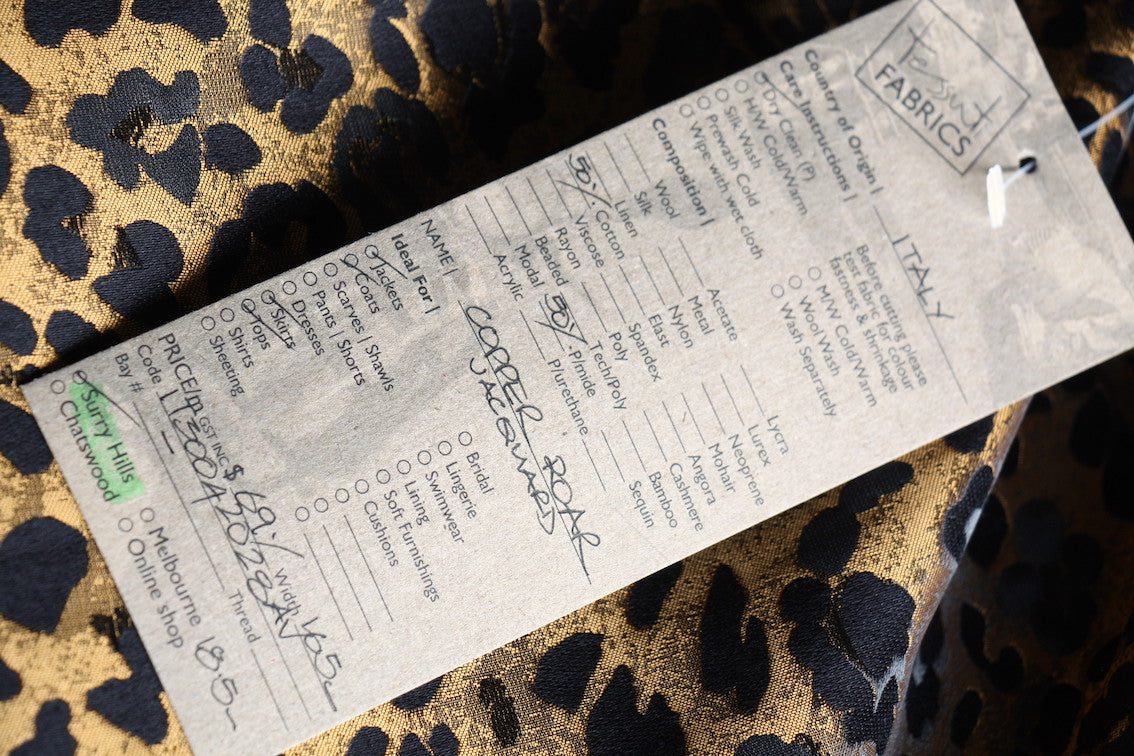 Tessuti
FABRICS
Country of Origin | ITALY
Care Instructions |
Dry Clean (P)
H/W Cold/Warm
Silk Wash
Prewash Cold
Wipe with wet cloth
Before cutting please
test fabric for colour
fastness & shrinkage
M/W Cold/Warm
Wool Wash
Wash Separately
Composition |
Wool
Silk
Linen
50% Cotton
Viscose
Rayon
Beaded
Modal
Acrylic
Acetate
Metal
Nylon
Elast
Spandex
Poly
Tech/Poly
50% P/mide
P/urethane
Lycra
Lurex
Neoprene
Mohair
Angora
Cashmere
Bamboo
Sequin
NAME | COPPER ROAR
JACQUARD
Ideal For |
Jackets
Coats
Scarves | Shawls
Pants | Shorts
Dresses
Skirts
Tops
Shirts
Sheeting
Bridal
Lingerie
Swimwear
Lining
Soft Furnishings
Cushions
PRICE/m GST INC $ 69./ Width 165
Code
Bay # Thread
Surry Hills
Chatswood
Melbourne
Online shop
18.5